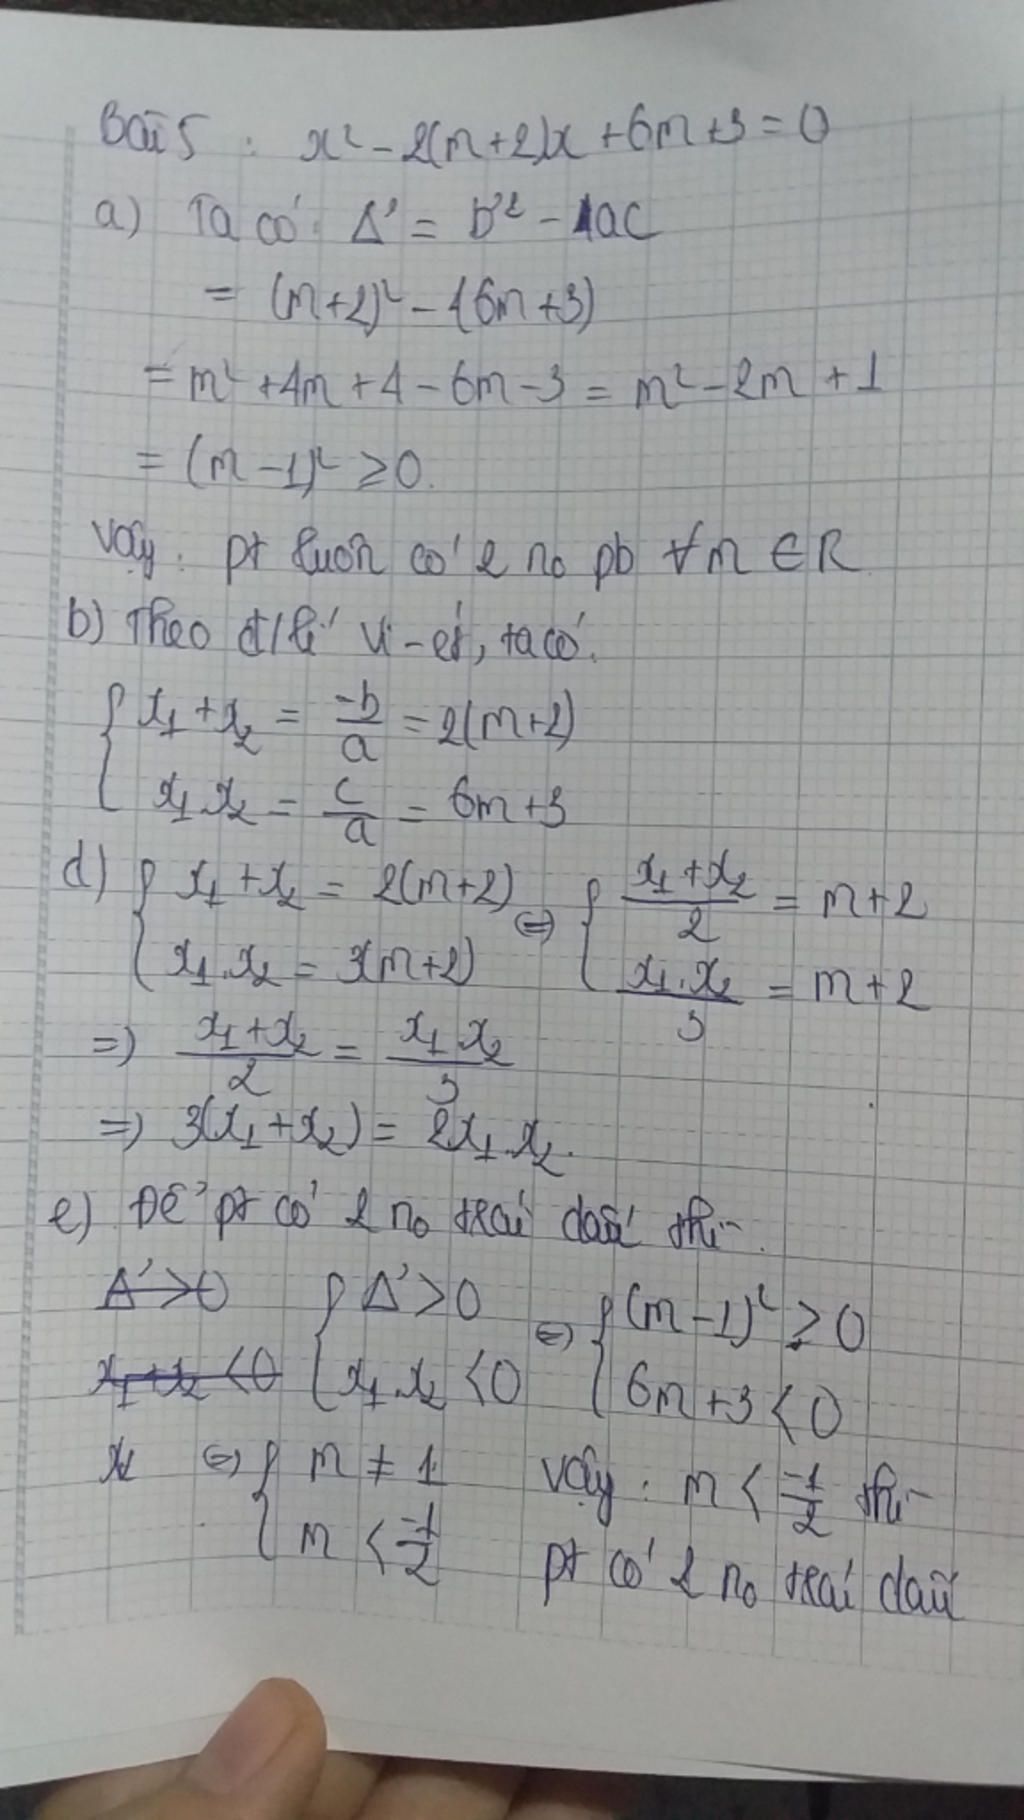 Bài 5 : x² - 2(m+2)x + 6m+3 = 0
a) Ta có : Δ' = b'² - 1ac
= (m+2)² - (6m+3)
= m² + 4m + 4 - 6m - 3 = m² - 2m + 1
= (m-1)² ≥ 0.
Vậy : pt luôn có 2 no pb ∀m ∈ R
b) Theo đ/lí Vi-ét, ta có.
{ x₁ + x₂ = -b/a = 2(m+2)
x₁.x₂ = c/a = 6m+3
d) { x₁ + x₂ = 2(m+2) ⇔ { (x₁ + x₂)/2 = m+2
x₁.x₂ = 3(m+2) (x₁.x₂)/3 = m+2
=> (x₁ + x₂)/2 = (x₁ x₂)/3
=> 3(x₁ + x₂) = 2x₁.x₂.
e) Để pt có 2 no trái dấu thì.
Δ' > 0 { Δ' > 0 ⇔ { (m-1)² ≥ 0
x₁ + x₂ < 0 x₁.x₂ < 0 6m+3 < 0
⇔ { m ≠ 1 Vậy : m < -1/2 thì
m < -1/2 pt có 2 no trái dấu